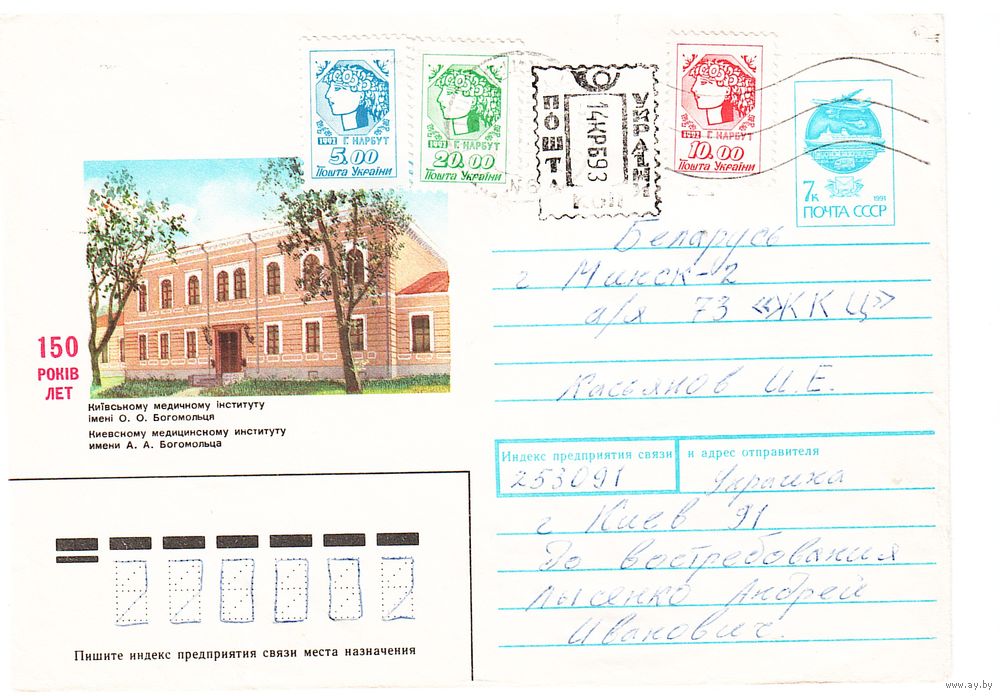 1992 Г. НАРБУТ
5.00
ПОШТА УКРАЇНИ
1992 Г. НАРБУТ
20.00
ПОШТА УКРАЇНИ
ПОШТА
14КВ693
УКРАЇНИ
1992 Г. НАРБУТ
10.00
ПОШТА УКРАЇНИ
7к 1991
ПОЧТА СССР
Беларусь
г Минск-2
а/я 73 «ЖКЦ»
Касьянов И. Е.
150
РОКІВ
ЛЕТ
Київському медичному інституту
імені О. О. Богомольця
Киевскому медицинскому институту
имени А. А. Богомольца
Индекс предприятия связи и адрес отправителя
253091 Украина
г Киев 91
До востребования
Лысенко Андрей
Иванович.
220002
Пишите индекс предприятия связи места назначения
www.ay.by